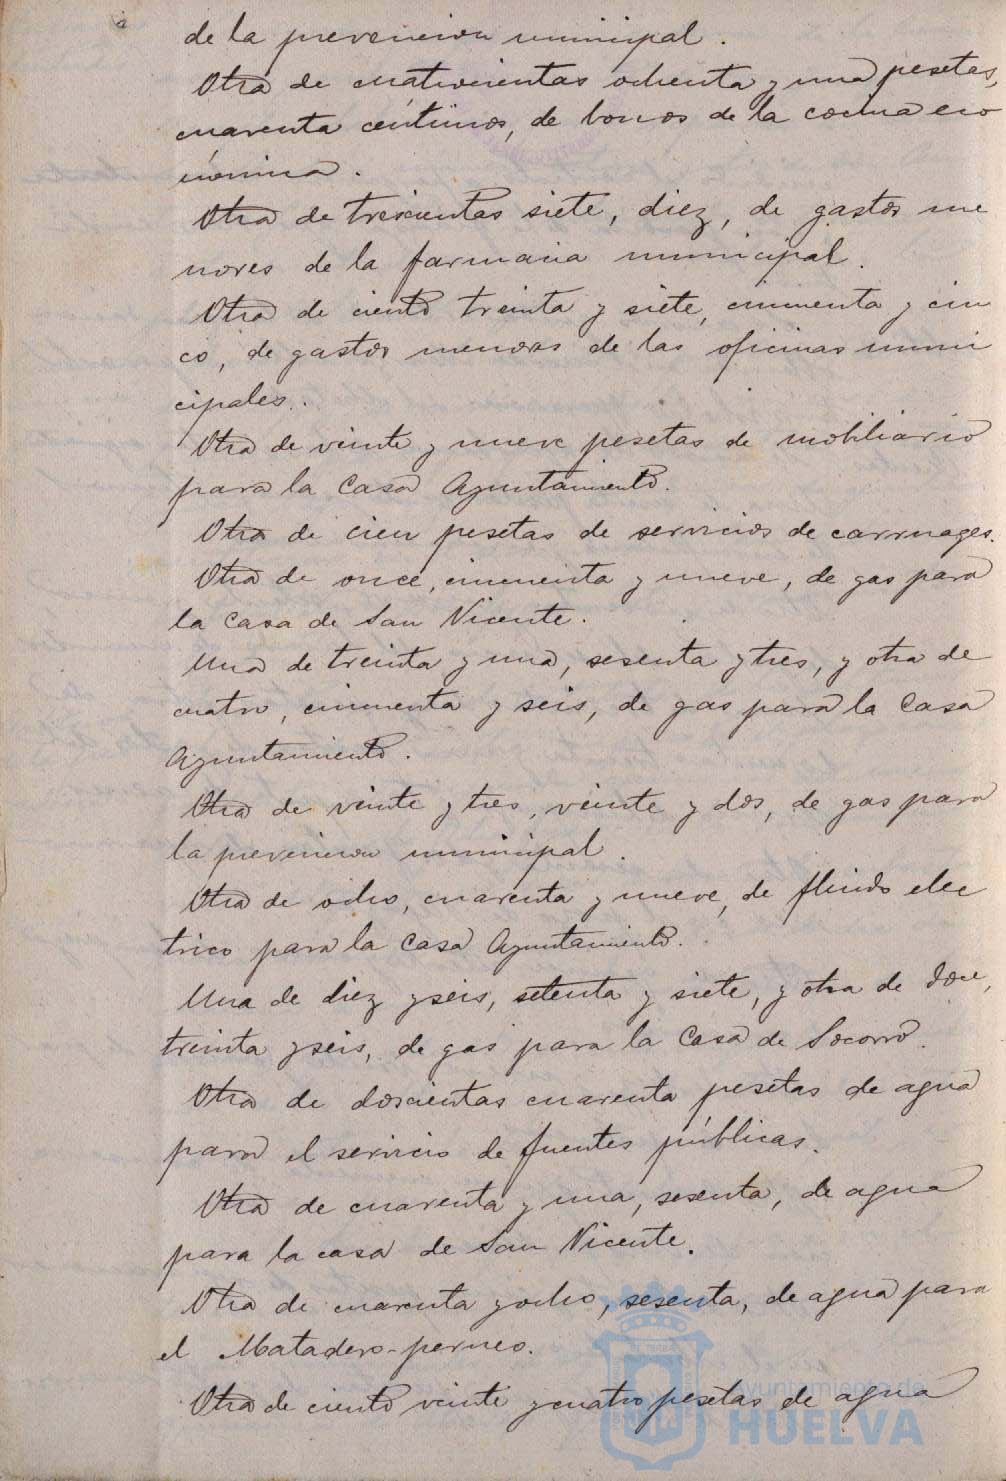 de la prevencion municipal.
Otra de cuatrocientas ochenta y una pesetas,
cuarenta centimos, de bonos de la cocina eco
nómica.
Otra de trescientas siete, diez, de gastos me
nores de la farmacia municipal.
Otra de ciento treinta y siete, cincuenta y cin
co, de gastos menores de las oficinas muni
cipales.
Otra de veinte y nueve pesetas de mobiliario
para la Casa Ayuntamiento.
Otra de cien pesetas de servicios de carruages.
Otra de once, cincuenta y nueve, de gas para
la casa de San Vicente.
Una de treinta y una, sesenta y tres, y otra de
cuatro, cincuenta y seis, de gas para la Casa
Ayuntamiento.
Otra de veinte y tres, veinte y dos, de gas para
la prevencion municipal.
Otra de ocho, cuarenta y nueve, de fluido elec
trico para la Casa Ayuntamiento.
Una de diez y seis, setenta y siete, y otra de doce,
treinta y seis, de gas para la Casa de Socorro.
Otra de doscientas cuarenta pesetas de agua
para el servicio de fuentes públicas.
Otra de cuarenta y una, sesenta, de agua
para la casa de San Vicente.
Otra de cuarenta y ocho, sesenta, de agua para
el Matadero-perneo.
Otra de ciento veinte y cuatro pesetas de agua
Ayuntamiento de
HUELVA